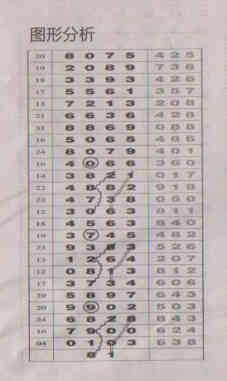 图形分析
20 6 0 7 5 4 2 5
19 2 0 8 9 7 3 6
18 3 3 9 3 4 2 6
17 5 5 6 1 3 5 7
13 7 2 1 3 2 0 8
21 6 6 3 6 4 2 8
28 8 8 6 9 0 8 8
16 5 0 6 5 4 8 6
24 8 0 7 9 4 0 1
16 4 0 6 6 3 6 0
14 3 8 2 1 0 1 7
22 4 8 8 2 9 1 8
22 4 7 3 8 0 5 0
12 3 0 6 3 8 1 1
18 4 5 6 3 8 4 0
19 3 7 4 5 4 8 2
23 9 3 8 3 5 2 6
13 1 2 6 4 2 0 7
12 0 8 1 3 8 1 2
17 3 7 3 4 6 0 6
29 5 8 9 7 6 4 3
20 9 9 0 2 5 0 3
24 6 8 2 8 8 4 3
16 7 9 0 0 6 2 4
04 0 1 0 3 6 3 8
8 1